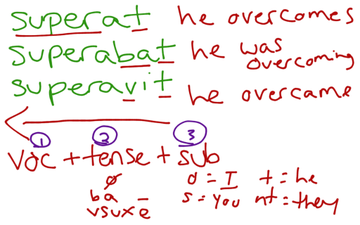 superat he overcomes
superabat he was overcoming
superavit he overcame
1 2 3
voc + tense + sub
ø o = I t = he
ba – s = you nt = they
vsuxe